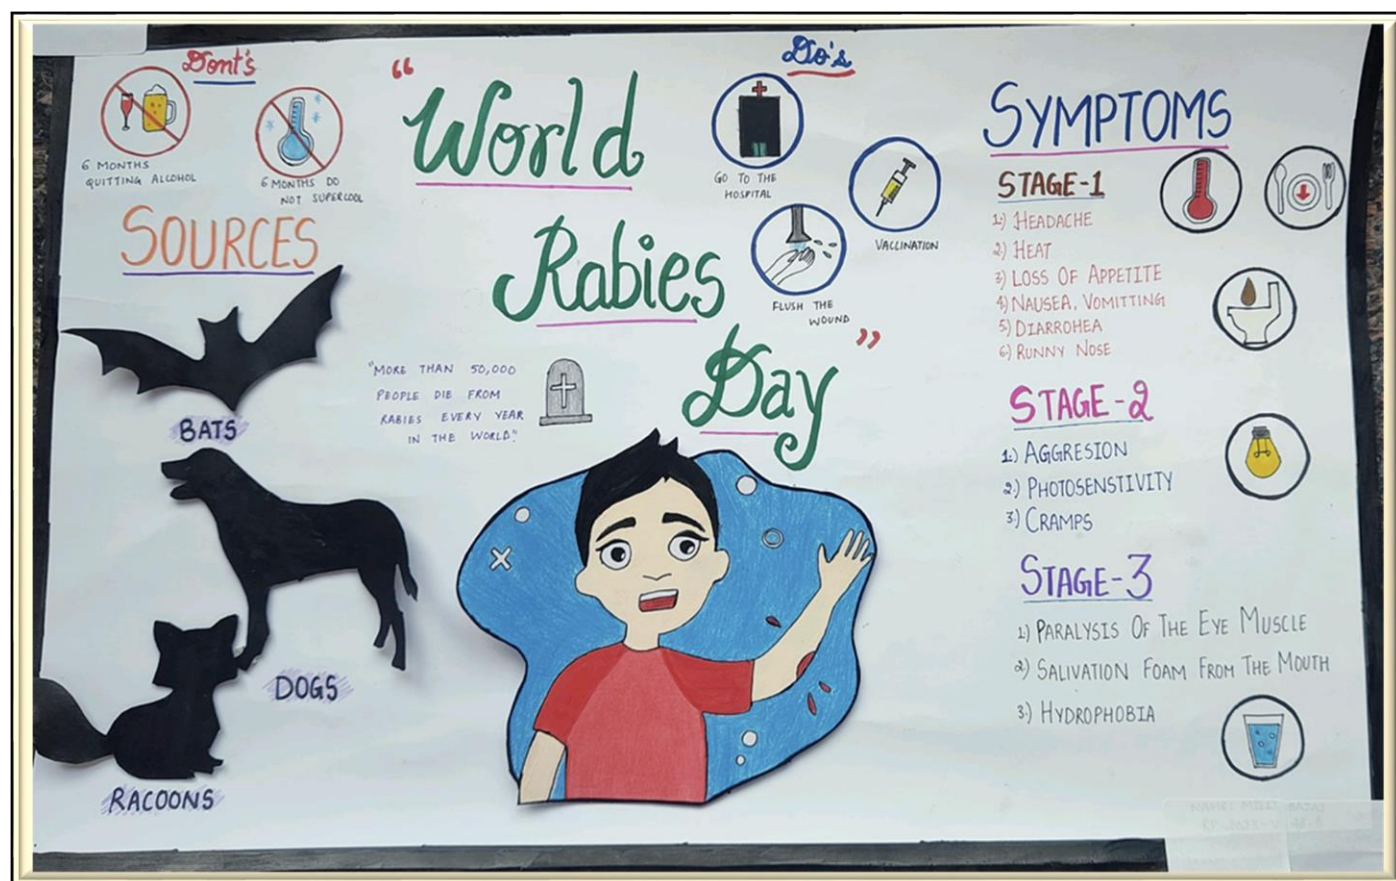 Dont's
6 MONTHS
QUITTING ALCOHOL
6 MONTHS DO
NOT SUPERCOOL
SOURCES
BATS
DOGS
RACOONS
“World
Rabies
Day”
"MORE THAN 50,000
PEOPLE DIE FROM
RABIES EVERY YEAR
IN THE WORLD."
Do's
GO TO THE
HOSPITAL
VACCINATION
FLUSH THE
WOUND
SYMPTOMS
STAGE-1
1.) HEADACHE
2) HEAT
3) LOSS OF APPETITE
4) NAUSEA, VOMITTING
5) DIARROHEA
6) RUNNY NOSE
STAGE-2
1.) AGGRESION
2.) PHOTOSENSTIVITY
3.) CRAMPS
STAGE-3
1) PARALYSIS OF THE EYE MUSCLE
2) SALIVATION FOAM FROM THE MOUTH
3.) HYDROPHOBIA